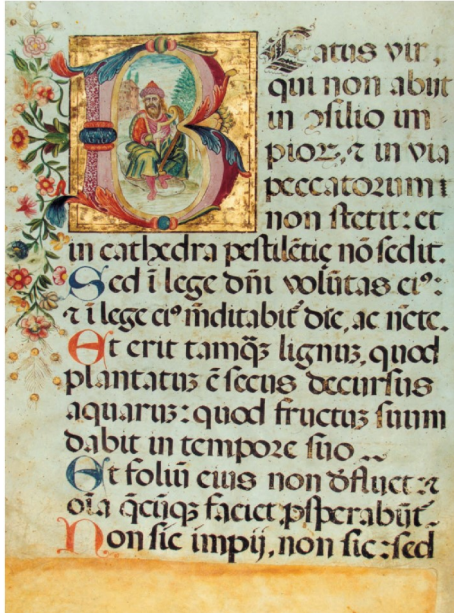 Beatus vir,
qui non abiit
in ꝯsilio im
pioꝝ, ⁊ in via
peccatorum
non stetit: et
in cathedra pestilētie nō sedit.
Sed ī lege dn̄i volūtas eiꝰ:
⁊ ī lege eiꝰ meditabit̄ die, ac nc̄te.
Et erit tamq̄ꝫ lignuꝫ, quod
plantatuꝫ ē secus decursus
aquaruꝫ: quod fructuꝫ suum
dabit in tempore suo
Et foliū eius non defluet: ⁊
oīa q̄cūqꝫ faciet ꝓsperabūt̄.
Non sic impij, non sic: sed